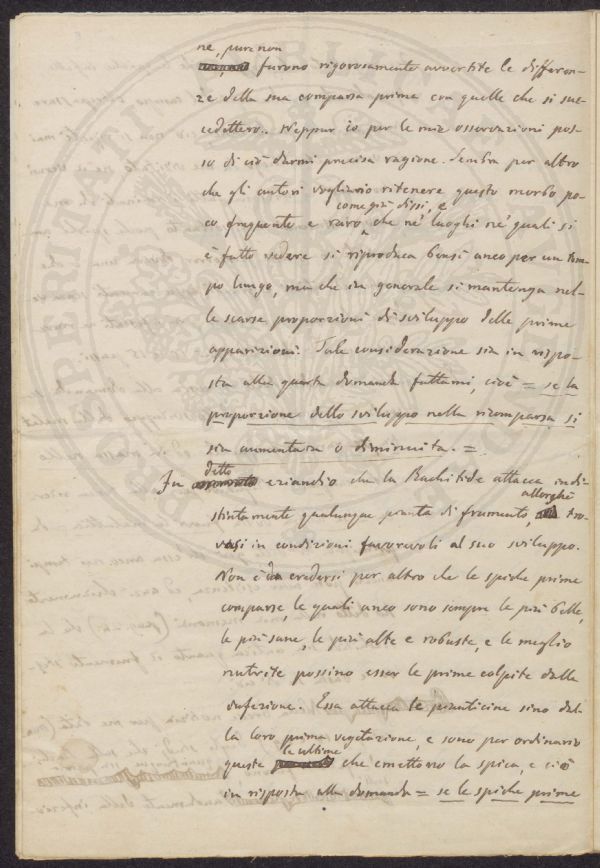 ne, pure non
furono rigorosamente avvertite le differen-
ze della sua comparsa prima con quelle che si suc-
cedettero. Neppur io per le mie osservazioni pos-
so di ciò darmi precisa ragione. Sembra per altro
che gli autori vogliano ritenere questo morbo po-
come già dissi, e
co frequente e raro, che ne' luoghi ne' quali si
è fatto vedere si riproduca bensì anco per un tem-
po lungo, ma che in generale si mantenga nel-
le scarse proporzioni di sviluppo delle prime
apparizioni. Tale considerazione sia in rispo-
sta alla quarta domanda fattami, cioè = se la
proporzione dello sviluppo nella ricomparsa si
sia aumentata o diminuita. =
detto
Fu eziandio che la Rachitide attacca indi-
allorchè
stintamente qualunque pianta di frumento, tro-
vasi in condizioni favorevoli al suo sviluppo.
Non è da credersi per altro che le spiche prime
comparse, le quali anco sono sempre le più belle,
le più sane, le più alte e robuste, e le meglio
nutrite possino esser le prime colpite dalla
infezione. Essa attacca le pianticine sino dal-
la loro prima vegetazione, e sono per ordinario
le ultime
queste che emettono la spica, e ciò
in risposta alla domanda = se le spiche prime